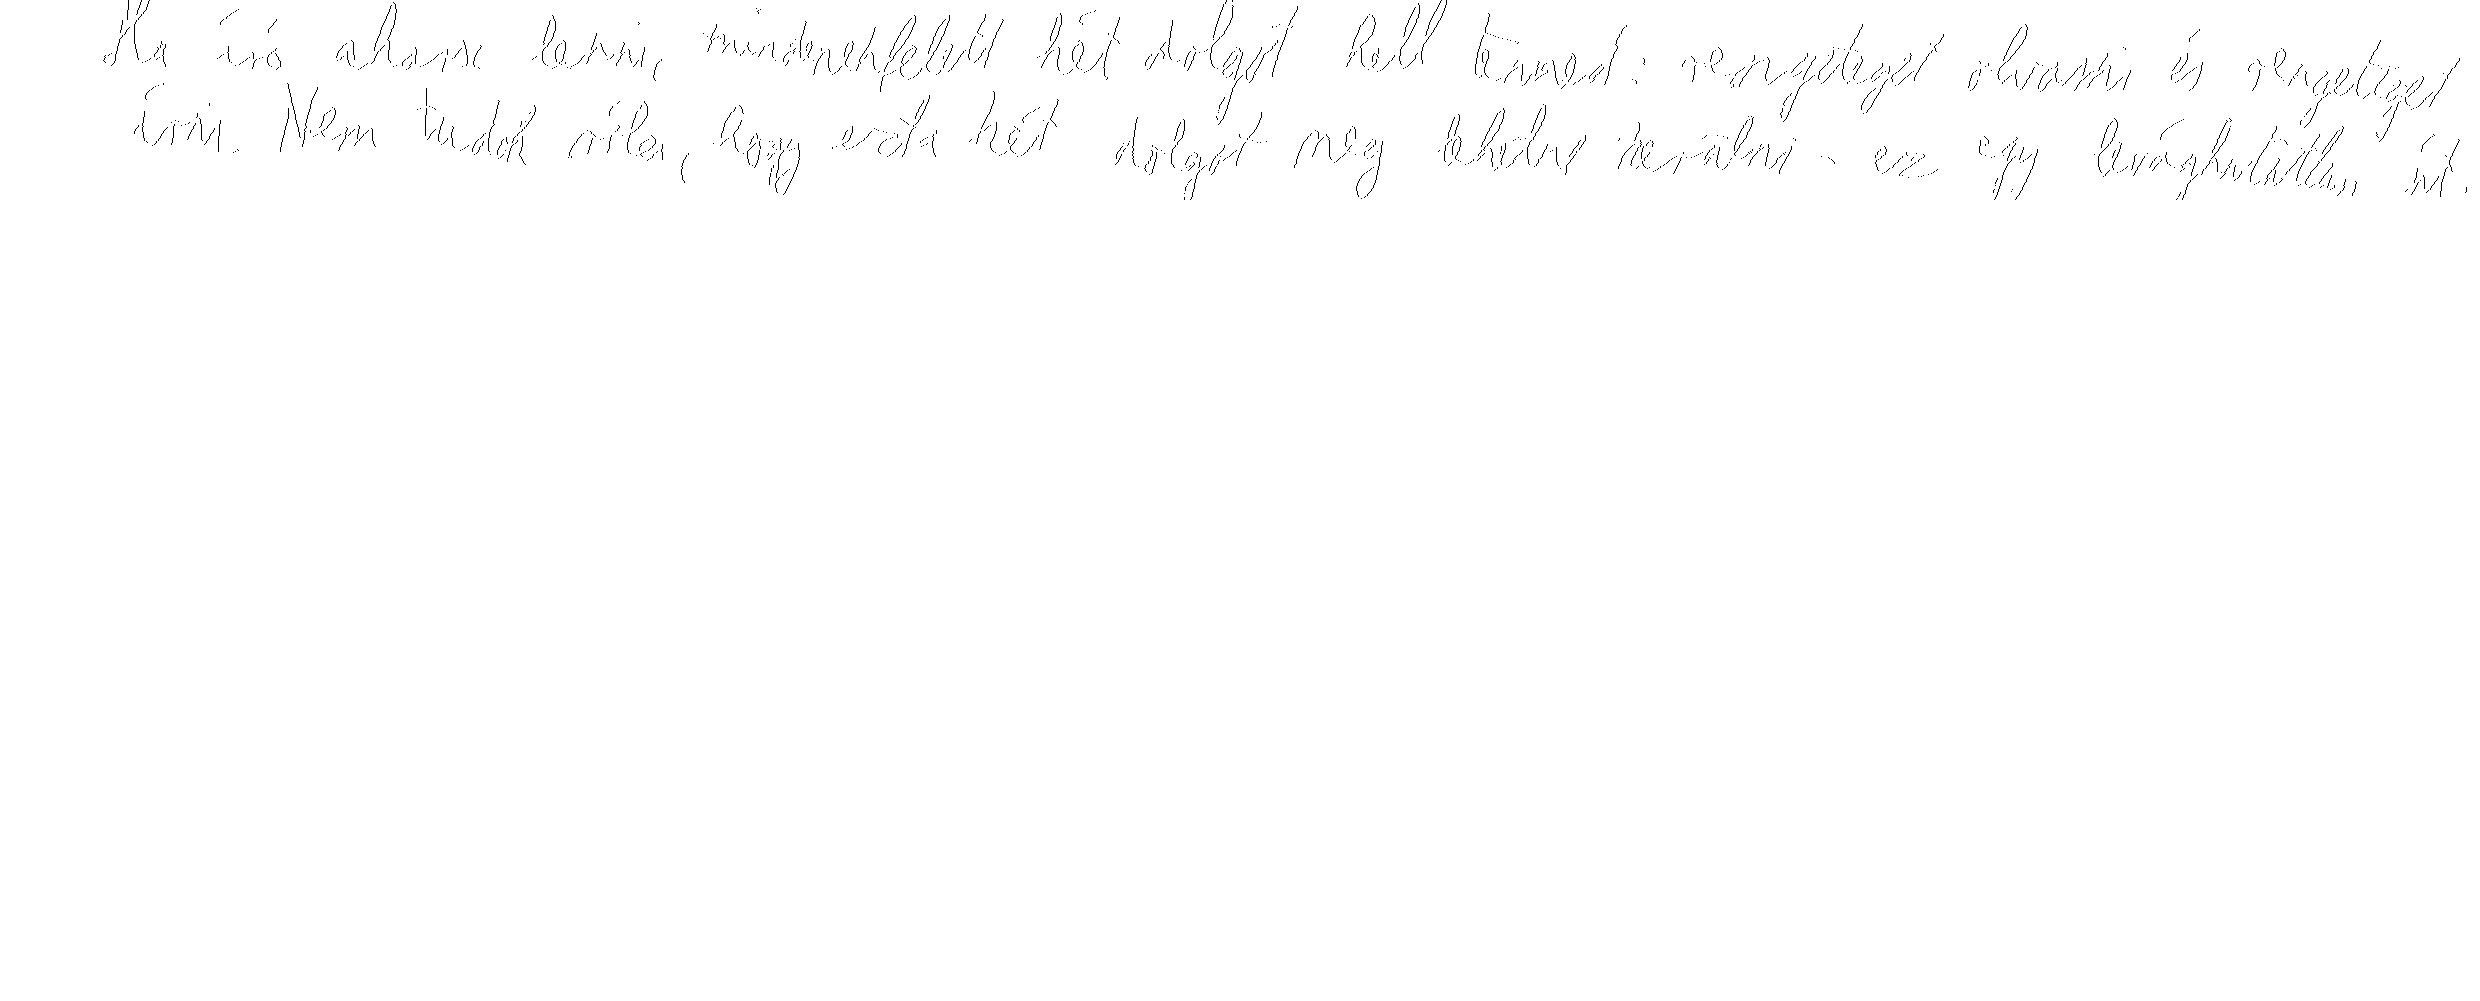 Ha író akarsz lenni, mindenekfelett két dolgot kell tenned: rengeteget olvasni és rengeteget
írni. Nem tudok róla, hogy ezt a két dolgot meg lehetne kerülni - ez egy levághatatlan út.